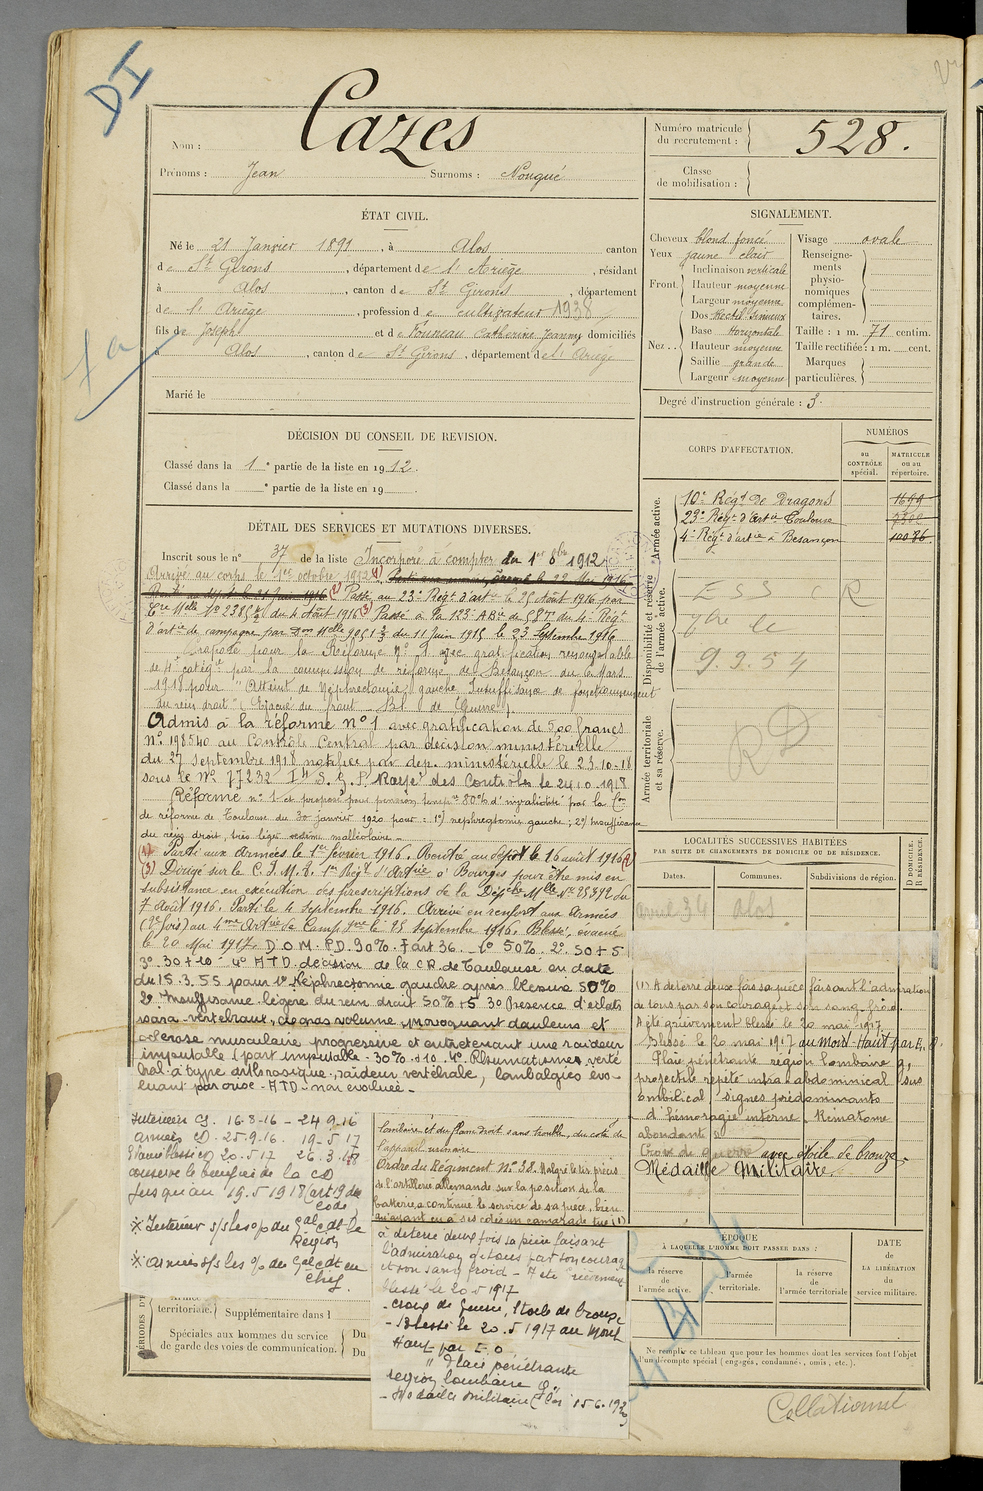 DI
Nom : Cazes
Prénoms : Jean Surnoms : Nougué
Numéro matricule du recrutement : 528.
Classe de mobilisation :
ÉTAT CIVIL.
Né le 21 Janvier 1891, à Alos canton
de St Girons, département de l'Ariège, résidant
à Alos, canton de St Girons, département
de l'Ariège, profession de cultivateur 1938
fils de Joseph et de Touneau Catherine Jeanne domiciliés
à Alos, canton de St Girons, département de l'Ariège
Marié le
SIGNALEMENT.
Cheveux blond foncé
Yeux jaune clair
Front Inclinaison verticale
Hauteur moyenne
Largeur moyenne
Nez Dos Rectil. Sinueux
Base Horizontale
Hauteur moyenne
Saillie grande
Largeur moyenne
Visage ovale
Renseignements physionomiques complémentaires.
Taille : 1 m. 71 centim.
Taille rectifiée : 1 m. cent.
Marques particulières.
Degré d'instruction générale : 3.
DÉCISION DU CONSEIL DE REVISION.
Classé dans la 1e partie de la liste en 1912.
Classé dans la e partie de la liste en 19
CORPS D'AFFECTATION.
NUMÉROS
au CONTRÔLE spécial.
MATRICULE ou au répertoire.
Armée active.
10e Régt de Dragons 1699
23e Régt d'artie Toulouse
4e Régt d'artie à Besançon 10076
Disponibilité et réserve de l'armée active.
9.9.54
Armée territoriale et sa réserve.
RD
DÉTAIL DES SERVICES ET MUTATIONS DIVERSES.
Inscrit sous le n° 37 de la liste Incorporé à compter du 1er 8bre 1912
Arrivé au corps le 1er octobre 1912 (1)
(2) Passé au 23e Régt d'artie le 25 Août 1916 par
du 4 Août 1916 (3) Passé à la 123e ABie de 58T du 4e Régt
d'artie de campagne par Don Melle du 11 Juin 1915 le 23 Septembre 1916
Proposé pour la Réforme N° 1 avec gratification renouvelable
de 4e catégie par la commission de réforme de Besançon du 6 Mars
1918 pour "Atteint de Néphrectomie gauche, Insuffisance de fonctionnement
du rein droit" (Evacué du front - Bl. de Guerre)
Admis à la réforme N°1 avec gratification de 500 francs
N° 198540 au Contrôle Central par décision ministérielle
du 27 septembre 1918 notifiée par dép. ministérielle le 23-10-18
sous le N° 77232 Rayé des Contrôles le 24.10.1918
Réformé n° 1 et proposé pour pension tempre 80% d'invalidité par la Con
de réforme de Toulouse du 30 janvier 1920 pour : 1°) nephrectomie gauche ; 2°) Insuffisance
du rein droit, très léger œdème malléolaire -
(1) Parti aux Armées le 1er février 1916. Rentré au dépôt le 16 août 1916 (2)
(3) Dirigé sur le C.I.M.T. 1er Régt d'Artie à Bourges pour être mis en
subsistance en exécution des prescriptions de la Dépche Melle N° 25392 du
7 Août 1916. Parti le 4 septembre 1916. Arrivé en renfort aux Armées
(2e fois) au 4me Artie de Camp gne le 25 septembre 1916. Blessé, évacué
le 20 Mai 1917. D.O.M. P.D. 90%. Fart 36. 1° 50%. 2° 50+5
3° 30+10 4° HTD. décision de la CR. de Toulouse en date
du 15.3.55 pour 1° Néphrectomie gauche après blessure 50%
2° Insuffisance légère du rein droit 50%+5 3° Présence d'éclats
para-vertébraux, de gros volume, provoquant douleurs et
sclérose musculaire progressive et entretenant une raideur
imputable (part imputable - 30% + 10. 4° Rhumatismes verté
bral à type arthrosique, raideur vertébrale, lombalgies évo-
luant par crise - HTD - non évaluée -
LOCALITÉS SUCCESSIVES HABITÉES
PAR SUITE DE CHANGEMENTS DE DOMICILE OU DE RÉSIDENCE.
Dates. Communes. Subdivisions de région. D DOMICILE. R RÉSIDENCE.
Avril 34 Alos
(1) A déterré deux fois sa pièce faisant l'admiration
de tous par son courage et son sang froid.
A été grièvement blessé le 20 mai 1917.
Blessé le 20 mai 1917 au Mont-Haut par E. O.
Plaie pénétrante région lombaire g,
projectile repéré intra-abdominical sus
ombilical, signes prédominants
d'hémorragie interne. Hématome
abondant
Croix de guerre avec étoile de bronze.
Médaille Militaire.
Intérieur CS. 16.8-16 - 24.9-16
Armées CD. 25-9-16. 19-5-17
Evacué blessé CD 20.5-17 26.3.18
conserve le bénéfice de la CD
jusqu'au 19.5.1918 (art 19 du
code)
* Intérieur s/s les o/ du Gal cdt le
Région
* Armées s/s les o/ des Gal cdt en
chef
lombaire et du flanc droit sans trouble, du côté de
l'appareil urinaire.
Ordre du Régiment N° 38. Malgré le tir précis
de l'artillerie allemande sur la position de la
batterie, a continué le service de sa pièce, bien
qu'ayant eu à ses côtés un camarade tué (1)
à déterré deux fois sa pièce faisant
l'admiration de tous par son courage
et son sang froid - A été grièvement
blessé le 20.5.1917
- Croix de Guerre, Etoile de bronze
- Blessé le 20.5.1917 au Mont
Haut par E.O
" Plaie pénétrante
région lombaire G"
- Médaille Militaire 15.6.1920
territoriale. Supplémentaire dans l
Spéciales aux hommes du service
de garde des voies de communication.
Du
Du
ÉPOQUE
À LAQUELLE L'HOMME DOIT PASSER DANS :
la réserve de l'armée active.
l'armée territoriale.
la réserve de l'armée territoriale
DATE de LA LIBÉRATION du service militaire.
Ne remplir ce tableau que pour les hommes dont les services font l'objet
d'un décompte spécial (engagés, condamnés, omis, etc.).
Collationné